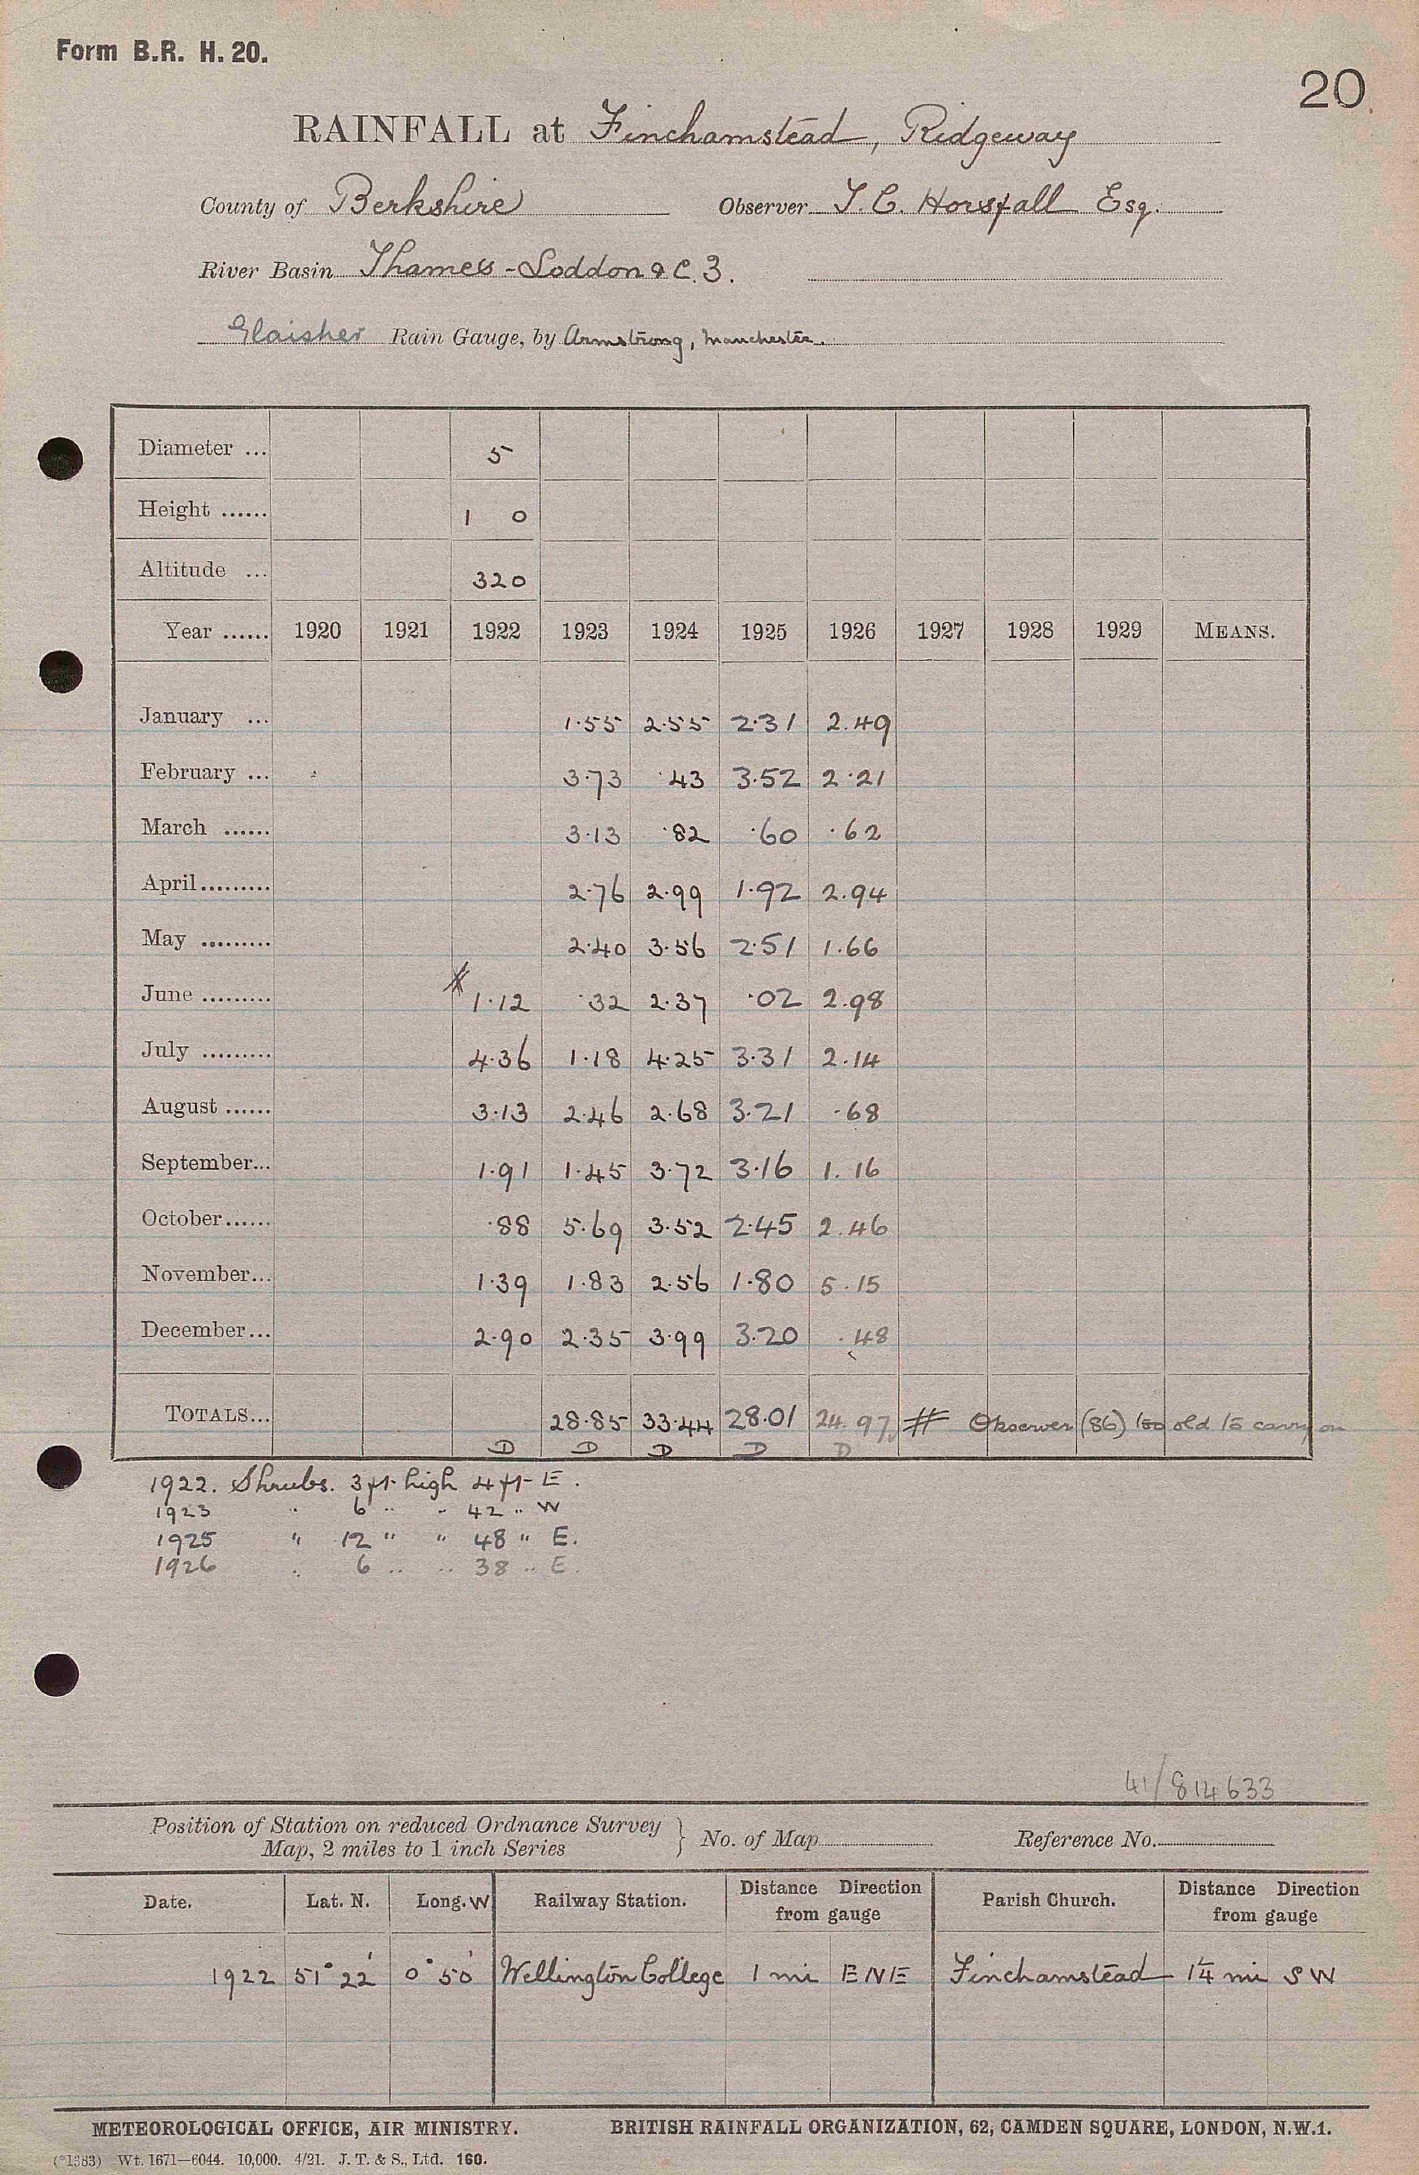 Form B.R. H. 20.
20
RAINFALL at Finchamstead, Ridgeway
County of Berkshire Observer T. C. Horsfall Esq.
River Basin Thames - Loddon &c. 3.
Glaisher Rain Gauge, by Armstrong, Manchester.
Diameter ... 5
Height ...... 1 0
Altitude ... 320
Year ...... 1920 1921 1922 1923 1924 1925 1926 1927 1928 1929 MEANS.
January ... 1.55 2.55 2.31 2.49
February ... 3.73 .43 3.52 2.21
March ...... 3.13 .82 .60 .62
April......... 2.76 2.99 1.92 2.94
May ......... 2.40 3.56 2.51 1.66
June ......... 1.12 .32 2.37 .02 2.98
July ......... 4.36 1.18 4.25 3.31 2.14
August ...... 3.13 2.46 2.68 3.21 .68
September... 1.91 1.45 3.72 3.16 1.16
October...... .88 5.69 3.52 2.45 2.46
November... 1.39 1.83 2.56 1.80 5.15
December... 2.90 2.35 3.99 3.20 .48
TOTALS... 28.85 33.44 28.01 24.97 # Observer (86) too old to carry on
D D D D D
1922. Shrubs. 3 ft high 4 ft E.
1923 " 6 " " 42 " W
1925 " 12 " " 48 " E.
1926 " 6 " " 38 " E.
41/814633
Position of Station on reduced Ordnance Survey Map, 2 miles to 1 inch Series } No. of Map Reference No.
Date. Lat. N. Long. W Railway Station. Distance Direction from gauge Parish Church. Distance Direction from gauge
1922 51° 22' 0° 50' Wellington College 1 mi ENE Finchamstead 1¼ mi SW
METEOROLOGICAL OFFICE, AIR MINISTRY. BRITISH RAINFALL ORGANIZATION, 62, CAMDEN SQUARE, LONDON, N.W.1.
(*1383) Wt. 1671—6044. 10,000. 4/21. J. T. & S., Ltd. 160.